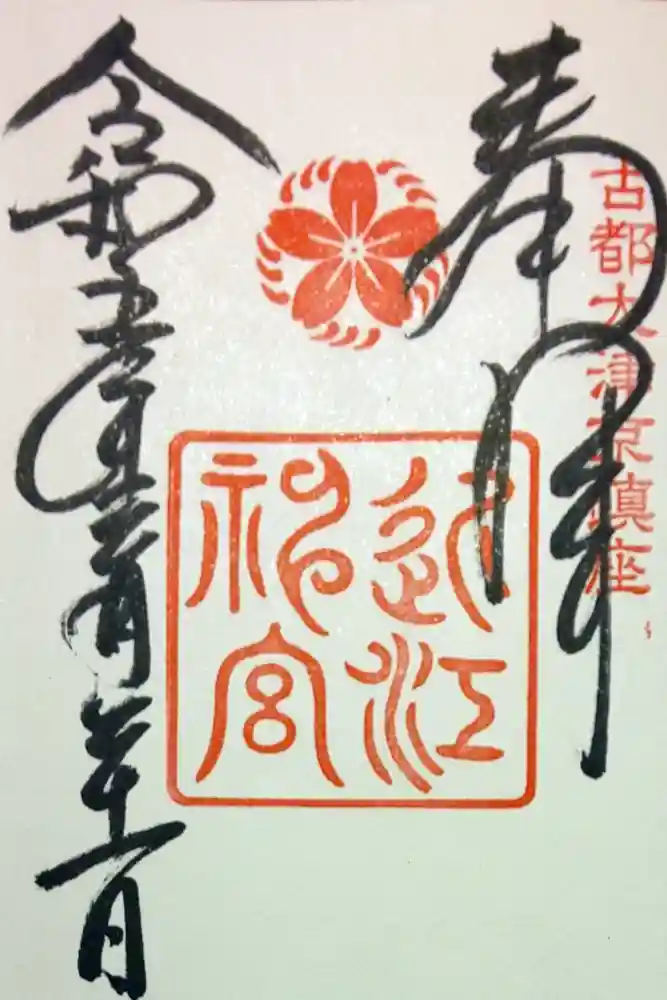 奉拝
古都大津京鎮座
近江
神宮
令和五年三月二十一日